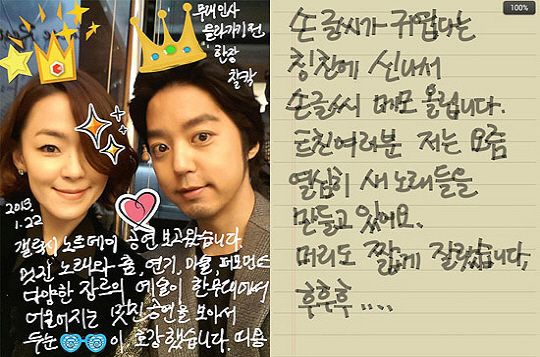 무대인사
올라가기전
한장
찰칵
2013.
1.22
갤럭시 노트 데이 공연 보고왔습니다.
멋진 노래와 춤, 연기, 마술, 퍼포먼스
다양한 장르의 예술이 한무대에서
어울어지는 멋진공연을 보아서
두눈이 호강했습니다. 띠용
100%
손글씨가 귀엽다는
칭찬에 신나서
손글씨 메모 올립니다.
트친여러분 저는 요즘
열심히 새노래들을
만들고 있어요.
머리도 짧게 잘랐습니다,
후후후 ....